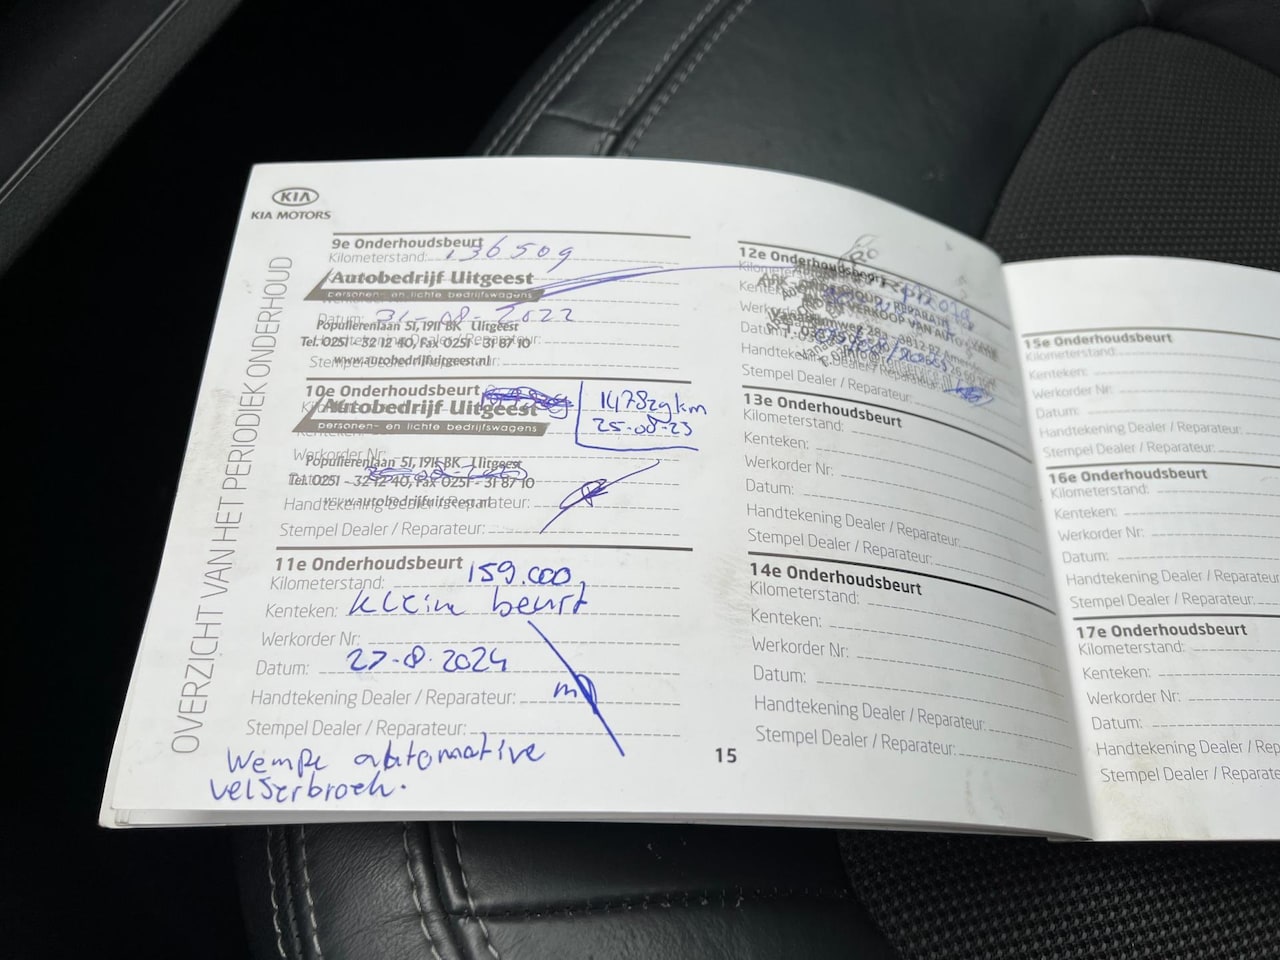 KIA
KIA MOTORS
OVERZICHT VAN HET PERIODIEK ONDERHOUD
9e Onderhoudsbeurt
Kilometerstand: 136509
Autobedrijf Uitgeest
personen- en lichte bedrijfswagens
Datum: 31-08-2022
Populierenlaan 51, 1911 BK Uitgeest
Tel. 0251 - 32 12 40, Fax 0251 - 31 87 10
www.autobedrijfuitgeest.nl
10e Onderhoudsbeurt
147829 km
25-08-23
Autobedrijf Uitgeest
personen- en lichte bedrijfswagens
Werkorder Nr:
Populierenlaan 51, 1911 BK Uitgeest
Tel. 0251 - 32 12 40, Fax 0251 - 31 87 10
www.autobedrijfuitgeest.nl
Handtekening Dealer / Reparateur:
Stempel Dealer / Reparateur:
11e Onderhoudsbeurt
Kilometerstand: 159.000,
Kenteken: kleine beurt
Werkorder Nr:
Datum: 27-8-2024
Handtekening Dealer / Reparateur:
Stempel Dealer / Reparateur:
Wempe automotive
velserbroek.
12e Onderhoudsbeurt
Handtekening Dealer / Reparateur:
Stempel Dealer / Reparateur:
13e Onderhoudsbeurt
Kilometerstand:
Kenteken:
Werkorder Nr:
Datum:
Handtekening Dealer / Reparateur:
Stempel Dealer / Reparateur:
14e Onderhoudsbeurt
Kilometerstand:
Kenteken:
Werkorder Nr:
Datum:
Handtekening Dealer / Reparateur:
Stempel Dealer / Reparateur:
15
15e Onderhoudsbeurt
Kilometerstand:
Kenteken:
Werkorder Nr:
Datum:
Handtekening Dealer / Reparateur:
Stempel Dealer / Reparateur:
16e Onderhoudsbeurt
Kilometerstand:
Kenteken:
Werkorder Nr:
Datum:
Handtekening Dealer / Reparateur:
Stempel Dealer / Reparateur:
17e Onderhoudsbeurt
Kilometerstand:
Kenteken:
Werkorder Nr:
Datum:
Handtekening Dealer / Rep
Stempel Dealer / Reparate